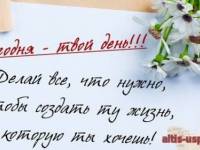 годня - твой день!!!
Делай все, что нужно,
тобы создать ту жизнь,
которую ты хочешь!
altis-usp